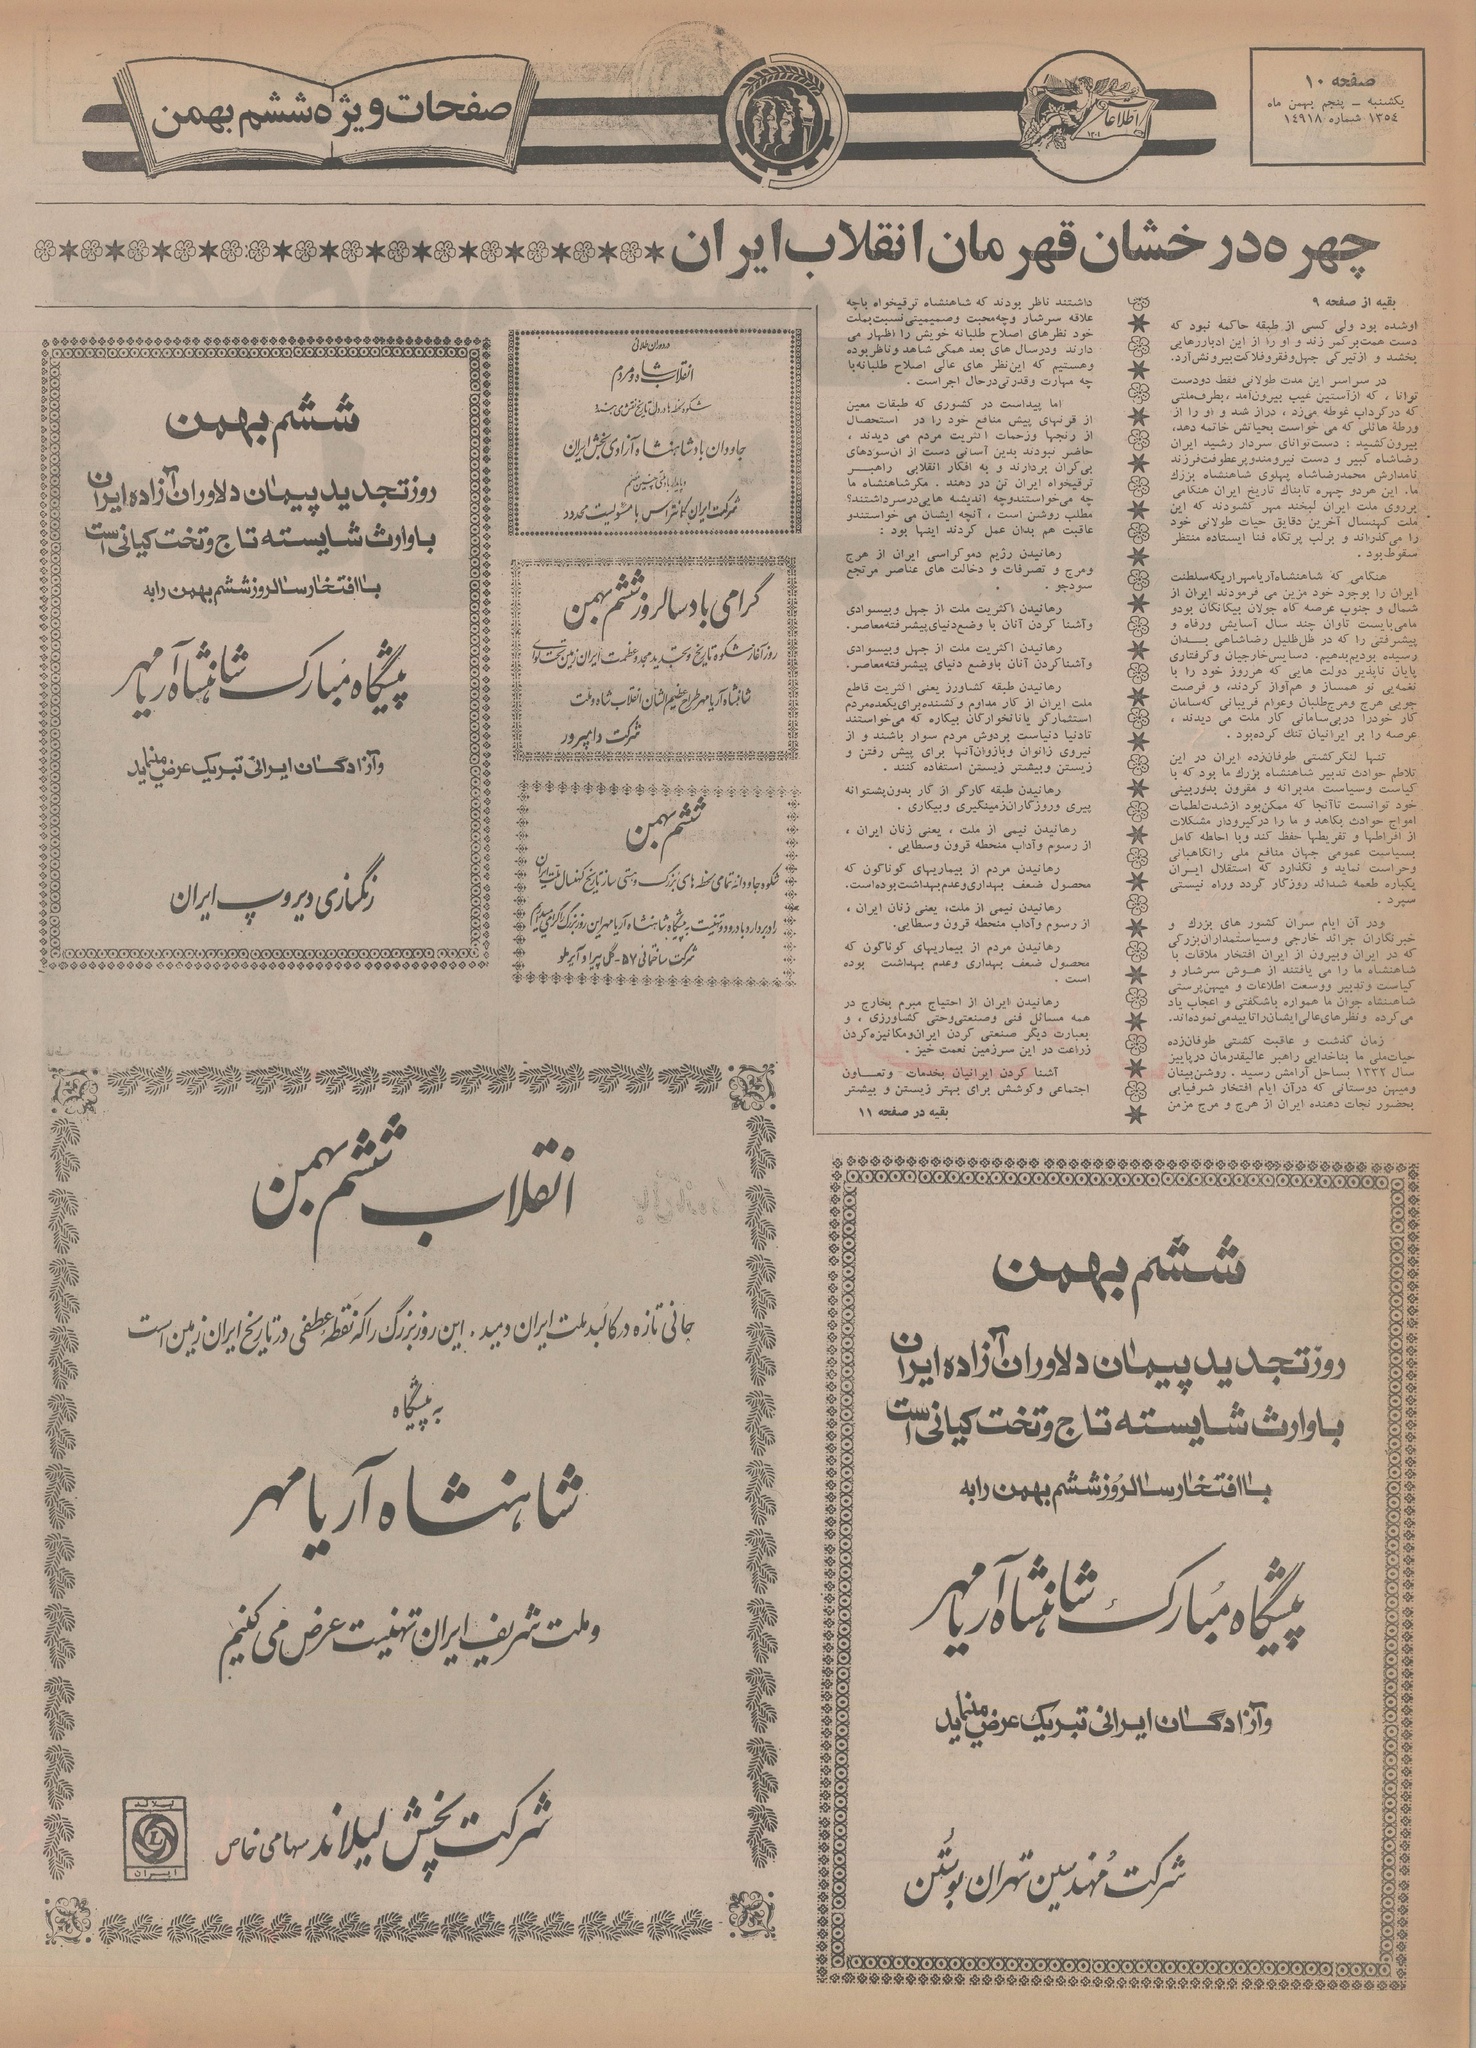 صفحه ۱۰
یکشنبه – پنجم بهمن ماه
۱۳۵٤ شماره ۱٤۹۱۸
اطلاعات
صفحات ویژه ششم بهمن
چهره درخشان قهرمان انقلاب ایران
بقیه از صفحه ۹
اوشده بود ولی کسی از طبقه حاکمه نبود که
دست همت بر کمر زند و او را از این ادبار رهایی
بخشد و از تیرگی جهل و فقر و فلاکت بیرونش آرد.
در سراسر این مدت طولانی فقط دو دست
توانا ، که از آستین غیب بیرون آمد ، بطرف ملتی
که در گرداب غوطه میزد ، دراز شد و او را از
ورطه هائلی که می خواست بحیاتش خاتمه دهد،
بیرون کشید : دست توانای سردار رشید ایران
رضاشاه کبیر و دست نیرومند و پر عطوفت فرزند
نامدارش محمدرضاشاه پهلوی شاهنشاه بزرگ
ما. این هر دو چهره تابناک تاریخ ایران هنگامی
بر روی ملت ایران لبخند مهر گشودند که این
ملت کهنسال آخرین دقایق حیات طولانی خود
را می گذراند و بر لب پرتگاه فنا ایستاده منتظر
سقوط بود .
هنگامی که شاهنشاه آریامهر اریکه سلطنت
ایران را بوجود خود مزین می فرمودند ایران از
شمال و جنوب عرصه گاه جولان بیگانگان بود و
ما می بایست تاوان چند سال آسایش و رفاه و
پیشرفتی را که در ظل ظلیل رضاشاهی بدان
رسیده بودیم بدهیم. دسایس خارجیان و گرفتاری
پایان ناپذیر دولت هایی که هر روز خود را با
نغمه یی نو همساز و هم آواز کردند، و فرصت
جویی هرج و مرج طلبان و عوام فریبانی که سامان
کار خود را در بی سامانی کار ملت می دیدند ،
عرصه را بر ایرانیان تنگ کرده بود.
تنها لنگر کشتی طوفان زده ایران در این
تلاطم حوادث تدبیر شاهنشاه بزرگ ما بود که با
کیاست و سیاست مدبرانه و مقرون بدوربینی
خود توانست تا آنجا که ممکن بود از شدت لطمات
امواج حوادث بکاهد و ما را در گیرودار مشکلات
از افراطها و تفریطها حفظ کند و با احاطه کامل
بسیاست عمومی جهان منافع ملی را نگاهبانی
و حراست نماید و نگذارد که استقلال ایران
یکباره طعمه شدائد روزگار گردد و راه نیستی
سپرد .
و در آن ایام سران کشور های بزرگ و
خبرنگاران جرائد خارجی و سیاستمداران بزرگی
که در ایران و بیرون از ایران افتخار ملاقات با
شاهنشاه ما را می یافتند از هوش سرشار و
کیاست و تدبیر و وسعت اطلاعات و میهن پرستی
شاهنشاه جوان ما همواره باشگفتی و اعجاب یاد
می کرده و نظرهای عالی ایشان را تایید می نموده اند.
زمان گذشت و عاقبت کشتی طوفان زده
حیات ملی ما بناخدایی راهبر عالیقدرمان در پاییز
سال ۱۳۳۲ بساحل آرامش رسید . روشن بینان
و میهن دوستانی که در آن ایام افتخار شرفیابی
بحضور نجات دهنده ایران از هرج و مرج مزمن
داشتند ناظر بودند که شاهنشاه ترقیخواه باچه
علاقه سرشار و چه محبت و صمیمیتی نسبت بملت
خود نظرهای اصلاح طلبانه خویش را اظهار می
دارند و در سال های بعد همگی شاهد و ناظر بوده
و هستیم که این نظر های عالی اصلاح طلبانه با
چه مهارت و قدرتی در حال اجراست .
اما پیداست در کشوری که طبقات معین
از قرنهای پیش منافع خود را در استحصال
از رنجها و زحمات اکثریت مردم می دیدند ،
حاضر نبودند بدین آسانی دست از آن سودهای
بی کران بردارند و به افکار انقلابی راهبر
ترقیخواه ایران تن در دهند . مگر شاهنشاه ما
چه می خواستند و چه اندیشه هایی در سر داشتند؟
مطلب روشن است ، آنچه ایشان می خواستند و
عاقبت هم بدان عمل کردند اینها بود :
رهانیدن رژیم دموکراسی ایران از هرج
و مرج و تصرفات و دخالت های عناصر مرتجع
سودجو .
رهانیدن اکثریت ملت از جهل و بیسوادی
و آشنا کردن آنان با وضع دنیای پیشرفته معاصر.
رهانیدن اکثریت ملت از جهل و بیسوادی
و آشنا کردن آنان با وضع دنیای پیشرفته معاصر.
رهانیدن طبقه کشاورز یعنی اکثریت قاطع
ملت ایران از کار مداوم و کشنده برای یکعده مردم
استثمارگر یا نانخوارگان بیکاره که می خواستند
تا دنیا دنیاست بر دوش مردم سوار باشند و از
نیروی زانوان و بازوان آنها برای پیش رفتن و
زیستن و بیشتر زیستن استفاده کنند .
رهانیدن طبقه کارگر از کار بدون پشتوانه
پیری و روزگاران زمینگیری و بیکاری .
رهانیدن نیمی از ملت ، یعنی زنان ایران ،
از رسوم و آداب منحطه قرون وسطایی .
رهانیدن مردم از بیماریهای گوناگون که
محصول ضعف بهداری و عدم بهداشت بوده است.
رهانیدن نیمی از ملت، یعنی زنان ایران ،
از رسوم و آداب منحطه قرون وسطایی.
رهانیدن مردم از بیماریهای گوناگون که
محصول ضعف بهداری و عدم بهداشت بوده
است .
رهانیدن ایران از احتیاج مبرم بخارج در
همه مسائل فنی و صنعتی و حتی کشاورزی ، و
بعبارت دیگر صنعتی کردن ایران و مکانیزه کردن
زراعت در این سرزمین نعمت خیز .
آشنا کردن ایرانیان بخدمات و تعاون
اجتماعی و کوشش برای بهتر زیستن و بیشتر
بقیه در صفحه ۱۱
در دوران طلائی
انقلاب شاه و مردم
شکوه لحظه ها در دل تاریخ نقش می بندد
جاودان باد شاهنشاه آزادی بخش ایران
شرکت ایران کانتراس با مسئولیت محدود
گرامی باد سالروز ششم بهمن
روز آغاز شکوه تاریخ و تجدید مجد و عظمت ایران زمین تحت لوای
شاهنشاه آریامهر طراح عظیم الشان انقلاب شاه و ملت
شرکت دامپرور
ششم بهمن
شکوه جاودانه تمامی لحظه های بزرگ و هستی ساز تاریخ کهنسال ملت ایران
را در بردارد با درود و تهنیت به پیشگاه شاهنشاه آریامهر این روز بزرگ را گرامی میداریم
شرکت ساختمانی ۵۷ – گلپیرا و آبرملو
ششم بهمن
روز تجدید پیمان دلاوران آزاده ایران
با وارث شایسته تاج و تخت کیانی است
با افتخار سالروز ششم بهمن را به
پیشگاه مبارک شاهنشاه آریامهر
و آزادگان ایرانی تبریک عرض مینماید
رنگسازی دیروپ ایران
انقلاب ششم بهمن
جانی تازه در کالبد ملت ایران دمید . این روز بزرگ را که نقطه عطفی در تاریخ ایران زمین است
به پیشگاه
شاهنشاه آریامهر
و ملت شریف ایران تهنیت عرض می کنیم
شرکت پخش لیلاند سهامی خاص
لیلاند
L
ایران
ششم بهمن
روز تجدید پیمان دلاوران آزاده ایران
با وارث شایسته تاج و تخت کیانی است
با افتخار سالروز ششم بهمن را به
پیشگاه مبارک شاهنشاه آریامهر
و آزادگان ایرانی تبریک عرض مینماید
شرکت مهندسین تهران بوستن